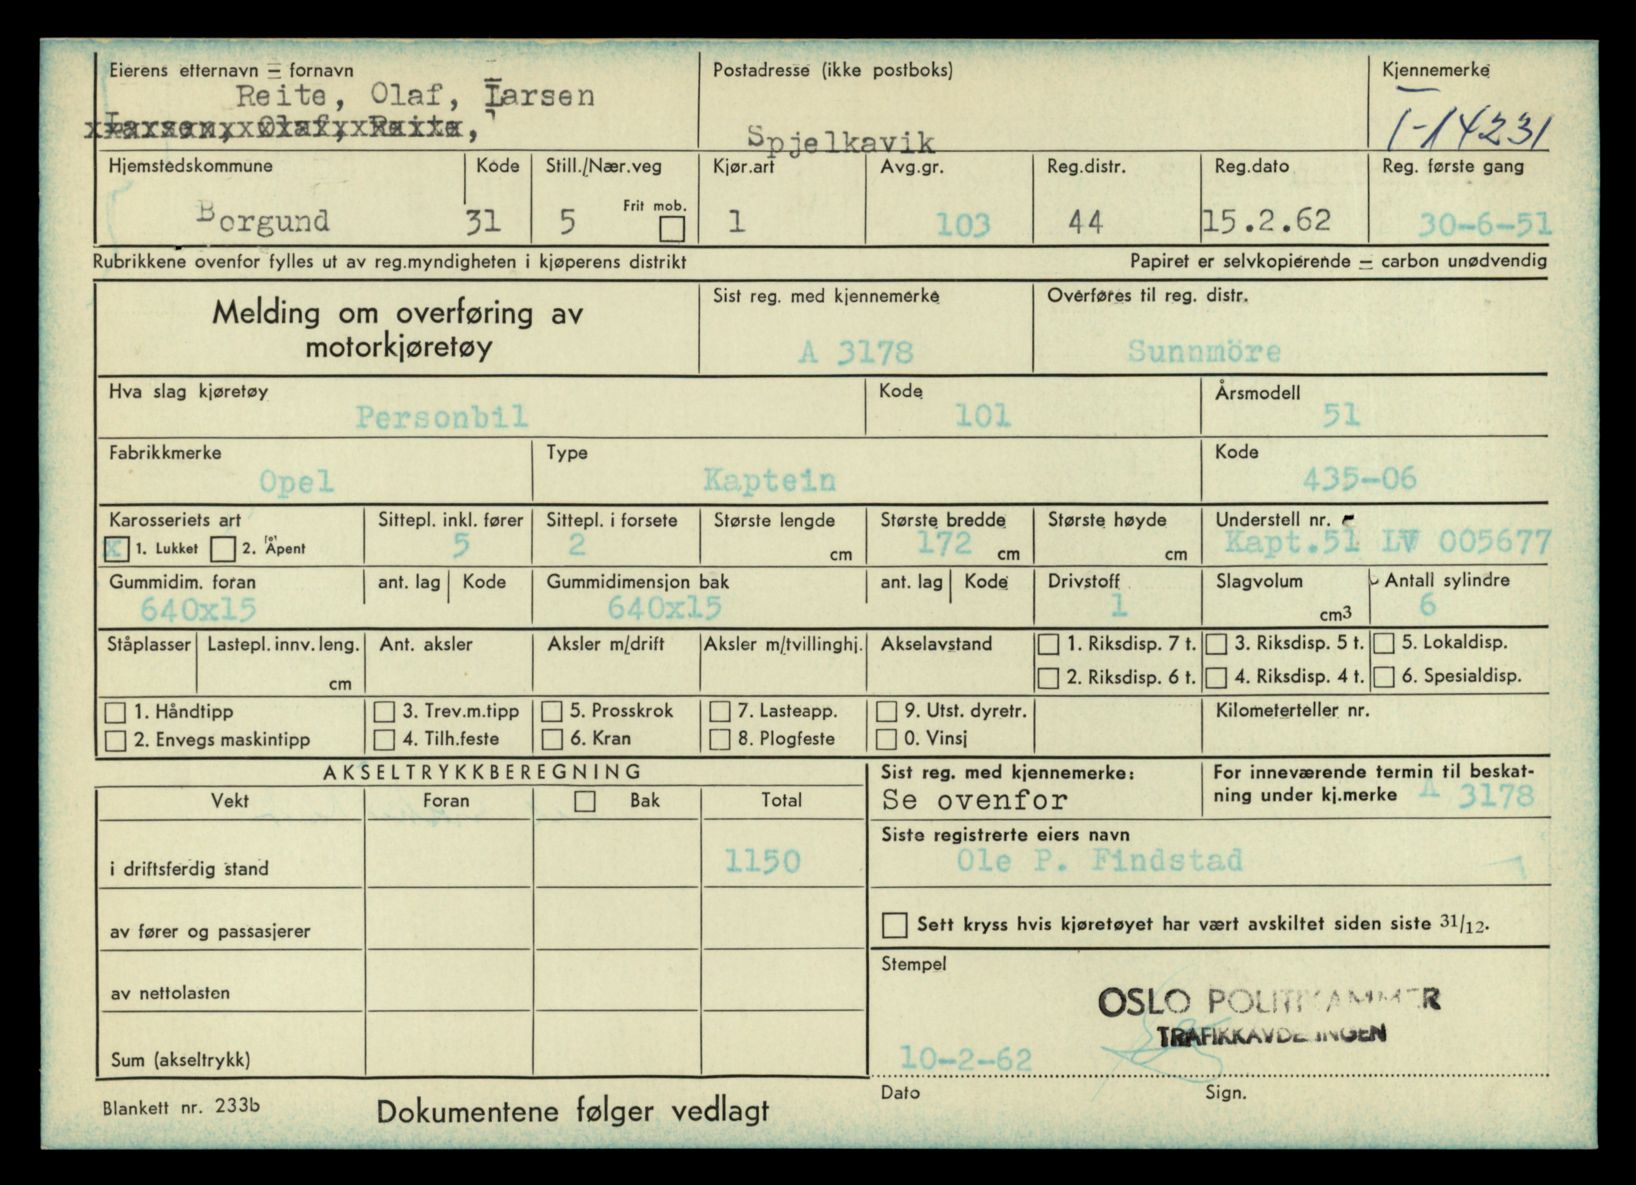 Eierens etternavn – fornavn
Reite, Olaf, Larsen
Larsen, Olaf, Reite,
Postadresse (ikke postboks)
Spjelkavik
Kjennemerke
T-14231
Hjemstedskommune
Borgund
Kode
31
Still./Nær.veg
5
Frit mob.
Kjør.art
1
Avg.gr.
103
Reg.distr.
44
Reg.dato
15.2.62
Reg. første gang
30-6-51
Rubrikkene ovenfor fylles ut av reg.myndigheten i kjøperens distrikt
Papiret er selvkopierende – carbon unødvendig
Melding om overføring av
motorkjøretøy
Sist reg. med kjennemerke
A 3178
Overføres til reg. distr.
Sunnmöre
Hva slag kjøretøy
Personbil
Kode
101
Årsmodell
51
Fabrikkmerke
Opel
Type
Kaptein
Kode
435-06
Karosseriets art
x 1. Lukket 2. Åpent
Sittepl. inkl. fører
5
Sittepl. i forsete
2
Største lengde
cm
Største bredde
172 cm
Største høyde
cm
Understell nr.
Kapt.51 LV 005677
Gummidim. foran
640x15
ant. lag
Kode
Gummidimensjon bak
640x15
ant. lag
Kode
Drivstoff
1
Slagvolum
cm3
Antall sylindre
6
Ståplasser
Lastepl. innv. leng.
cm
Ant. aksler
Aksler m/drift
Aksler m/tvillinghj.
Akselavstand
1. Riksdisp. 7 t.
3. Riksdisp. 5 t.
5. Lokaldisp.
2. Riksdisp. 6 t.
4. Riksdisp. 4 t.
6. Spesialdisp.
1. Håndtipp
3. Trev.m.tipp
5. Prosskrok
7. Lasteapp.
9. Utst. dyretr.
2. Envegs maskintipp
4. Tilh.feste
6. Kran
8. Plogfeste
0. Vinsj
Kilometerteller nr.
AKSELTRYKKBEREGNING
Vekt
Foran
Bak
Total
i driftsferdig stand
1150
av fører og passasjerer
av nettolasten
Sum (akseltrykk)
Sist reg. med kjennemerke:
Se ovenfor
For inneværende termin til beskat-
ning under kj.merke A 3178
Siste registrerte eiers navn
Ole P. Findstad
Sett kryss hvis kjøretøyet har vært avskiltet siden siste 31/12.
Stempel
OSLO POLITIKAMMER
TRAFIKKAVDELINGEN
10-2-62
Dato
Sign.
Blankett nr. 233b
Dokumentene følger vedlagt